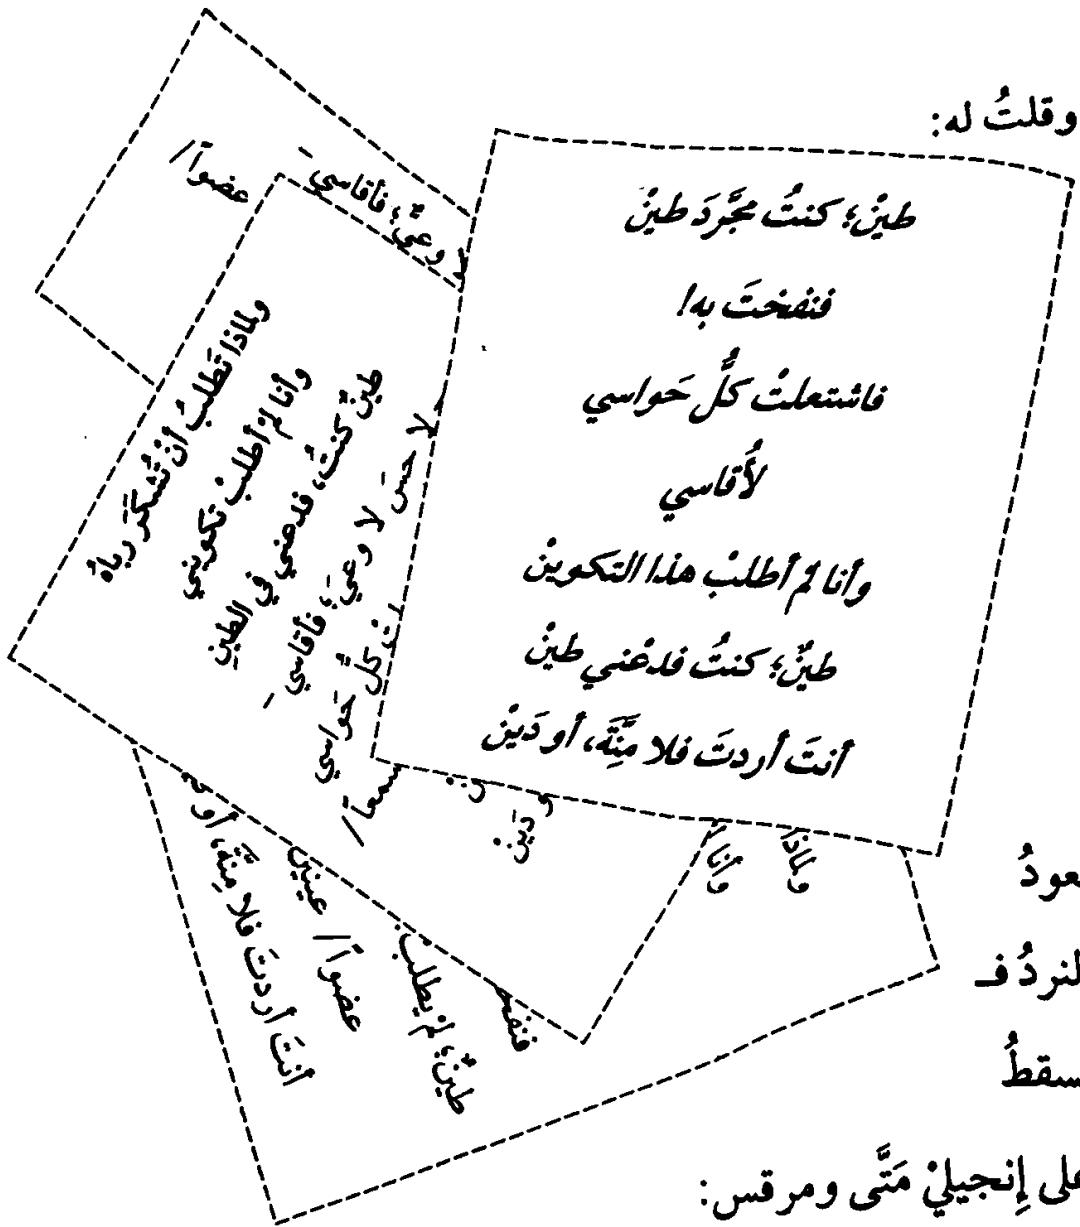 وقلتُ له:
طينْ؛ كنتُ مجَّردَ طينْ
فنفختَ به!
فاشتعلتْ كلُّ حَواسي
لأُقاسي
وأنا لمْ أطلبْ هذا التكوينْ
طينٌ؛ كنتُ فدعْني طينْ
أنتَ أردتَ فلا مِنَّةَ، أو دَينْ
عضواً/
وعيٌ؛ فأقاسيَ
ولماذا تَطلبُ أنْ تُشكَرَ رباهُ
وأنا لمْ أطلبْ تكويني
طينٌ كنتُ، فدعني في الطينِ
لا حسَ لا وعيَ؛ فأقاسيَ
كلُّ حَواسي
سمعاً/
دَينْ
ولماذا
أنتَ أردتَ فلا مِنَّةَ، أو
عضواً/ عينين
طينٌ؛ لمْ يطلبْ
النردُ فـ
على إِنجيليْ مَتَّى ومرقس: